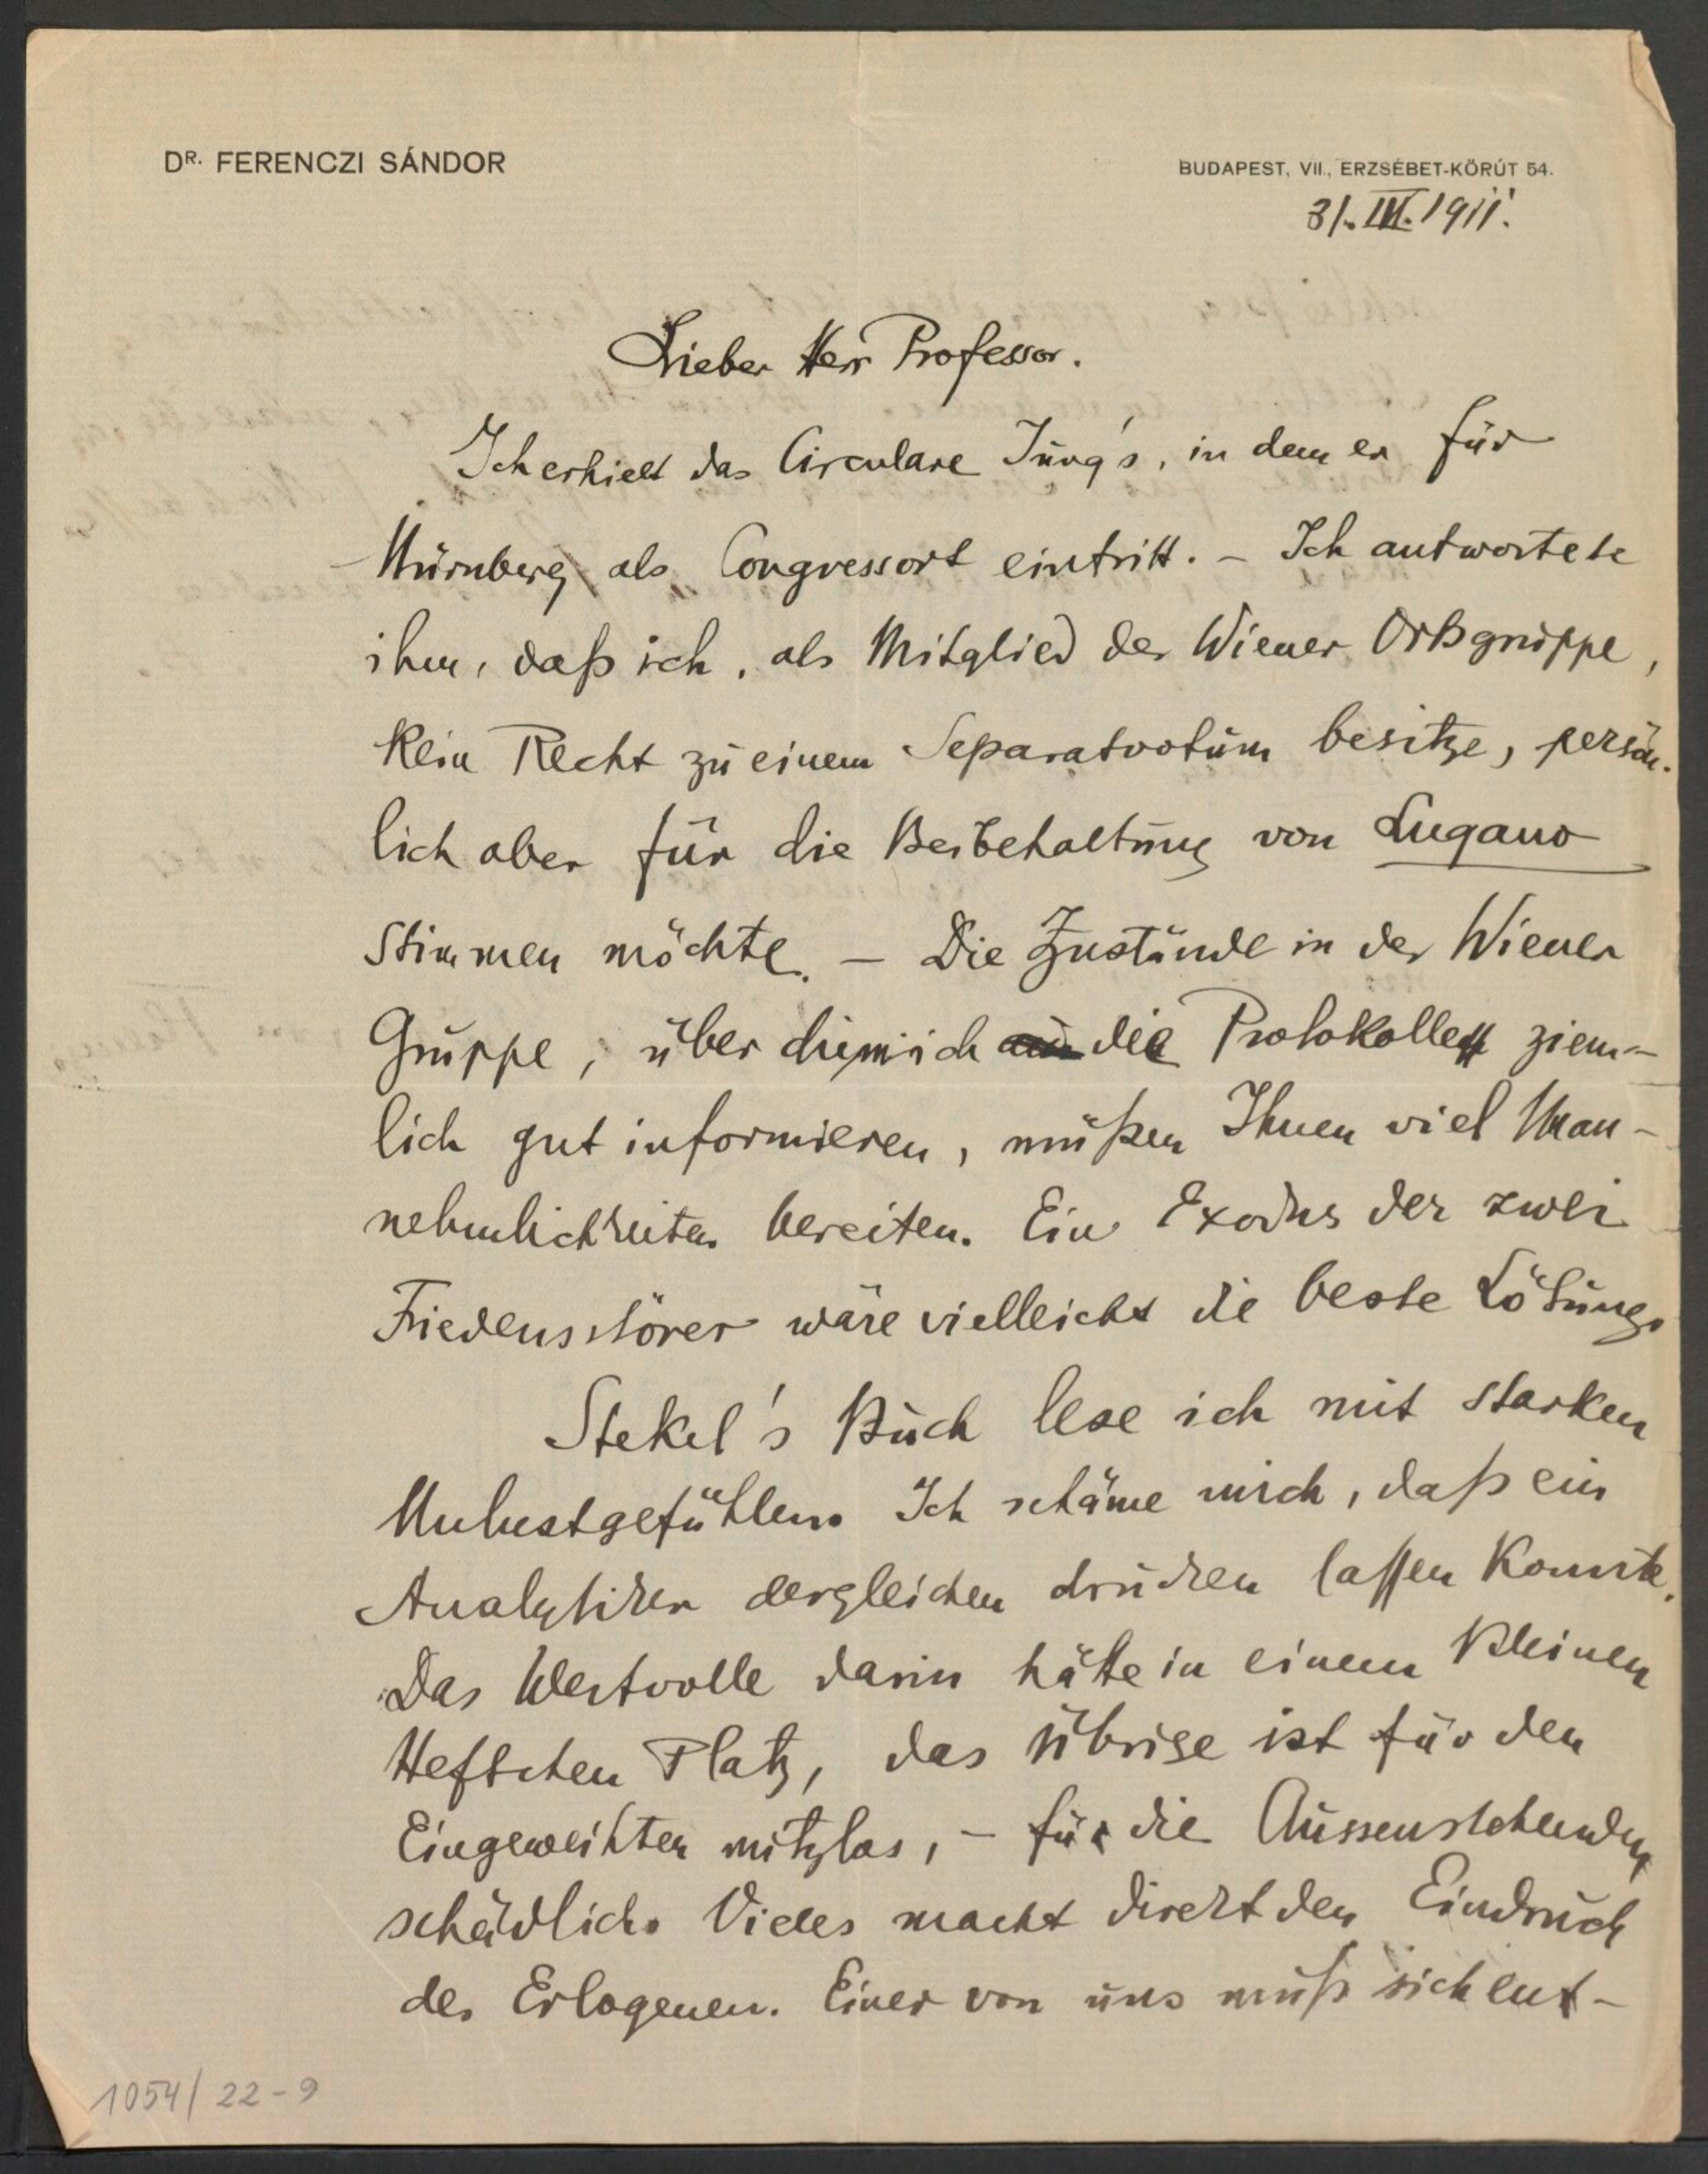 DR. FERENCZI SÁNDOR
BUDAPEST, VII., ERZSÉBET-KÖRÚT 54.
31. III. 1911.
Lieber Herr Professor.
Ich erhielt das Circulare Jung's, in dem er für
Nürnberg als Congressort eintritt. – Ich antwortete
ihm, daß ich, als Mitglied der Wiener Ortsgruppe,
kein Recht zu einem Separatvotum besitze, persön-
lich aber für die Beibehaltung von Lugano
stimmen möchte. – Die Zustände in der Wiener
Gruppe, über die mich die Protokolle ziem-
lich gut informieren, müßen Ihnen viel Unan-
nehmlichkeiten bereiten. Ein Exodus der zwei
Friedensstörer wäre vielleicht die beste Lösung.
Stekel's Buch lese ich mit starken
Unlustgefühlen. Ich schäme mich, daß ein
Analytiker dergleichen drucken lassen konnte.
Das Wertvolle darin hätte in einem kleinen
Heftchen Platz, das übrige ist für den
Eingeweihten nutzlos, – für die Aussenstehenden
schädlich. Vieles macht direkt den Eindruck
des Erlogenen. Einer von uns muß sich ent-
1054/22-9